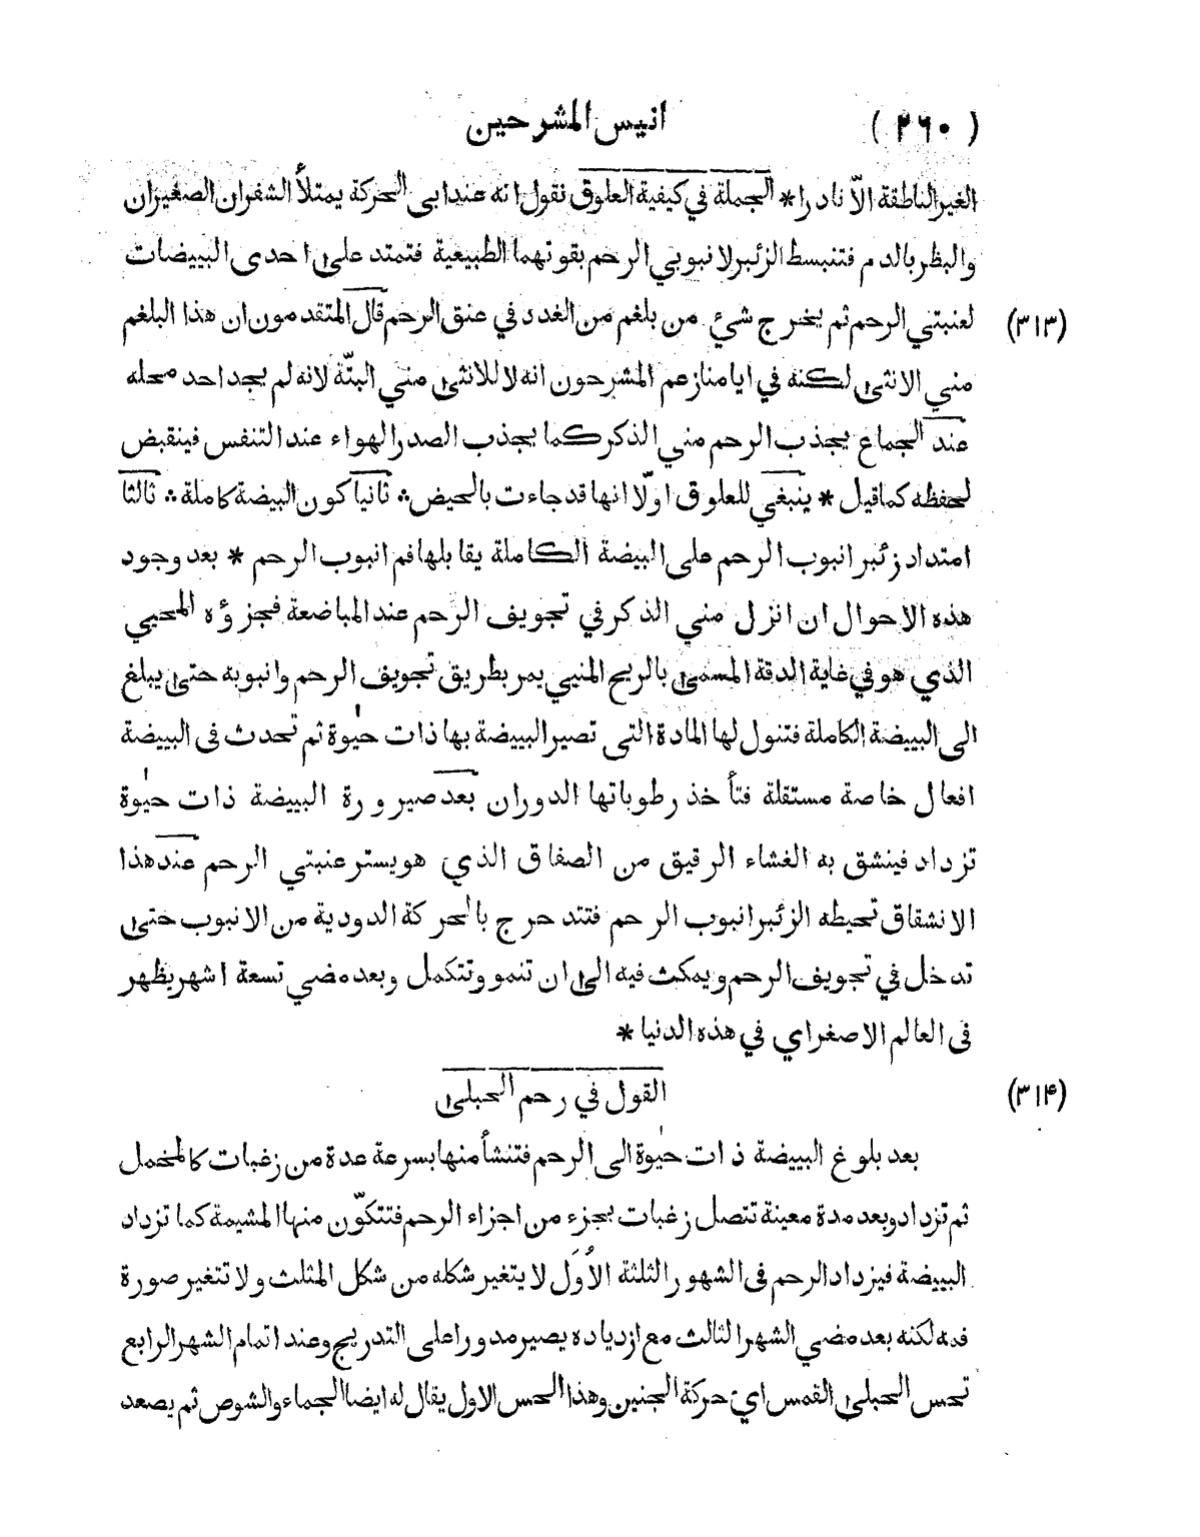 ( ٢٦٠ ) انيس المشرحين
الغير الناطقة الاّ نادرا * الجملة في كيفية العلوق نقول انه عند ابى الحركة يمتلأ الشفران الصغيران
والبظر بالدم فتنبسط الزئبر لانبوبي الرحم بقوتهما الطبيعية فتمتد على احدى البييضات
لعنبتي الرحم ثم يخرج شئ من بلغم من الغدد في عنق الرحم قال المتقدمون ان هذا البلغم (٣١٣)
مني الانثى لكنه في ايامنا زعم المشرحون انه لا للانثى مني البتّة لانه لم يجد احد محله
عند الجماع يجذب الرحم مني الذكر كما يجذب الصدر الهواء عند التنفس فينقبض
لحفظه كما قيل * ينبغي للعلوق اولّا انها قد جاءت بالحيض * ثانيا كون البيضة كاملة * ثالثا
امتداد زئبر انبوب الرحم على البيضة الكاملة يقابلها فم انبوب الرحم * بعد وجود
هذه الاحوال ان انزل مني الذكر في تجويف الرحم عند المباضعة فجزؤه المحيي
الذي هو في غاية الدقة المسمى بالريح المنيي يمر بطريق تجويف الرحم وانبوبه حتى يبلغ
الى البييضة الكاملة فتنول لها المادة التى تصير البييضة بها ذات حيٰوة ثم تحدث فى البييضة
افعال خاصة مستقلة فتأخذ رطوباتها الدوران بعد صيرورة البييضة ذات حيٰوة
تزداد فينشق به الغشاء الرقيق من الصفاق الذي هو يستر عنبتي الرحم عند هذا
الانشقاق تحيطه الزئبر انبوب الرحم فتتدحرج بالحركة الدودية من الانبوب حتى
تدخل في تجويف الرحم ويمكث فيه الى ان تنمو وتتكمل وبعد مضي تسعة اشهر يظهر
فى العالم الاصغر اي في هذه الدنيا *
القول في رحم الحبلى (٣١۴)
بعد بلوغ البييضة ذات حيٰوة الى الرحم فتنشأ منها بسرعة عدة من زغبات كالمخمل
ثم تزداد وبعد مدة معينة تتصل زغبات بجزء من اجزاء الرحم فتتكوّن منها المشيمة كما تزداد
البييضة فيزداد الرحم فى الشهور الثلثة الأوَل لا يتغير شكله من شكل المثلث ولا تتغير صورة
فمه لكنه بعد مضي الشهر الثالث مع ازدياده يصير مدورا على التدريج وعند اتمام الشهر الرابع
تحس الحبلى القمس اي حركة الجنين وهذا الحس الاول يقال له ايضا الجماء والشوص ثم يصعد